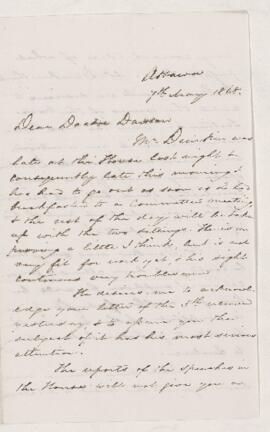 Ottawa
7th May 1868.
Dear Doctor Dawson
Mr Dunkin was
late at the House last night &
consequently late this morning &
has had to go out as soon as he had
breakfasted to a Committee meeting
& the rest of the day will be taken
up with the two sittings. He is im
proving a little I think, but is not
very fit for work yet & his sight
continues very troublesome
He desires me to acknowl
edge your letter of the 5th received
yesterday, & to assure you the
subject of it has his most serious
attention.
The reports of the speeches in
the House will not give you an